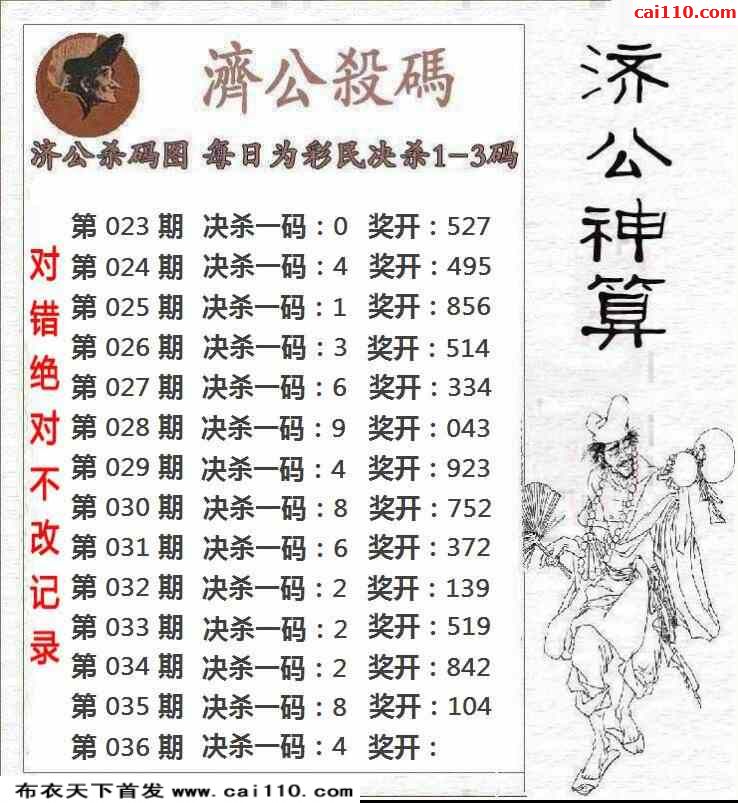 cai110.com
濟公殺碼
济公杀码图 每日为彩民决杀1-3码
对错绝对不改记录
第 023 期 决杀一码：0 奖开：527
第 024 期 决杀一码：4 奖开：495
第 025 期 决杀一码：1 奖开：856
第 026 期 决杀一码：3 奖开：514
第 027 期 决杀一码：6 奖开：334
第 028 期 决杀一码：9 奖开：043
第 029 期 决杀一码：4 奖开：923
第 030 期 决杀一码：8 奖开：752
第 031 期 决杀一码：6 奖开：372
第 032 期 决杀一码：2 奖开：139
第 033 期 决杀一码：2 奖开：519
第 034 期 决杀一码：2 奖开：842
第 035 期 决杀一码：8 奖开：104
第 036 期 决杀一码：4 奖开：
济公神算
布衣天下首发 www.cai110.com